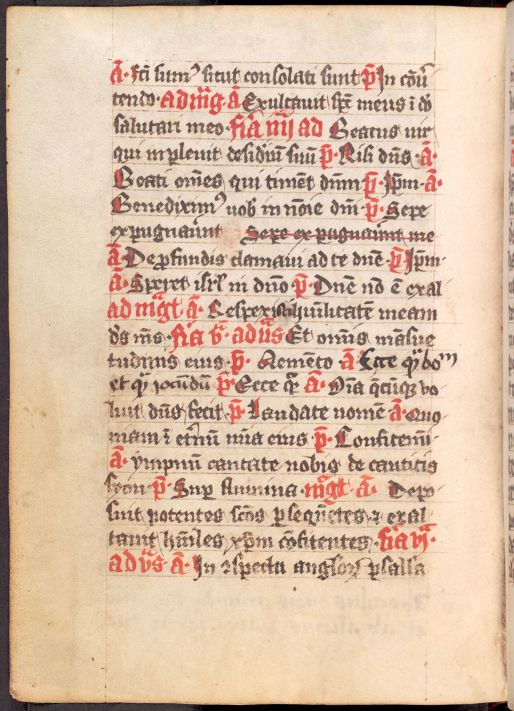 A̅· fc̅i sum⁹ sicut consolati sunt p̅ In co̅u̅
tendo· ad m̅g A̅ Exultauit sp̅c meus i̅ do̅
salutari meo· fi̅a iiij ad Beatus uir
qui inpleuit desid̅iu̅ suu̅ p̅· Nisi dn̅s· A̅·
Beati om̅es qui timēt dn̅m p̅· Ip̅m· A̅·
Benedixim⁹ uob̅ in no̅ie dn̅i p̅· Sepe
expugnau̅nt Sepe expugnau̅nt me
A̅· De p̅fundis clamaui ad te dn̅e· p̅ Ip̅m·
A̅· Speret isrl̅ in dn̅o p̅· Dn̅e no̅ e̅ exal
ad m̅gt̅· A̅· Respexit hu̅ilitate̅ meam
ds̅ m̅s· fi̅a v̅· ad v̅s Et om̅is ma̅sue
tudinis eius· p̅· Meme̅to A̅ Ecce q̅ bo̅m
et q̅ iocu̅du̅ p̅· Ecce q̅· A̅· Om̅ia q̅cu̅q̅ vo
luit dn̅s fecit· p̅· Laudate nome̅ A̅· Quo
niam i̅ et̅nu̅ mi̅a eius p̅· Confitemi
A̅· ympnu̅ cantate nobis de canticis
syon p̅· Sup̅ flumina· m̅gt̅· A̅· Depo
suit potentes sc̅os p̅seque̅tes· ⁊ exal
tauit hu̅iles xp̅m co̅fitentes· fi̅a vj̅·
ad v̅s· A̅· In ꝯspectu anglor̅ psalla